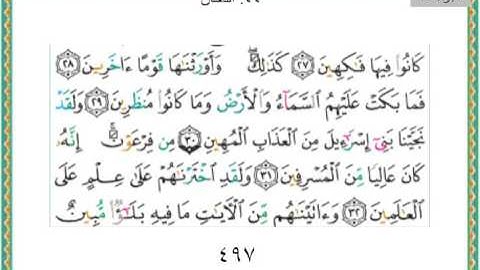 ٤٤. الدخان
كَانُوا۟ فِيهَا فَٰكِهِينَ ٢٧ كَذَٰلِكَ ۖ وَأَوْرَثْنَٰهَا قَوْمًا ءَاخَرِينَ ٢٨
فَمَا بَكَتْ عَلَيْهِمُ ٱلسَّمَآءُ وَٱلْأَرْضُ وَمَا كَانُوا۟ مُنظَرِينَ ٢٩ وَلَقَدْ
نَجَّيْنَا بَنِىٓ إِسْرَٰٓءِيلَ مِنَ ٱلْعَذَابِ ٱلْمُهِينِ ٣٠ مِن فِرْعَوْنَ ۚ إِنَّهُۥ
كَانَ عَالِيًا مِّنَ ٱلْمُسْرِفِينَ ٣١ وَلَقَدِ ٱخْتَرْنَٰهُمْ عَلَىٰ عِلْمٍ عَلَى
ٱلْعَٰلَمِينَ ٣٢ وَءَاتَيْنَٰهُم مِّنَ ٱلْءَايَٰتِ مَا فِيهِ بَلَٰٓؤٌا۟ مُّبِينٌ
٤٩٧